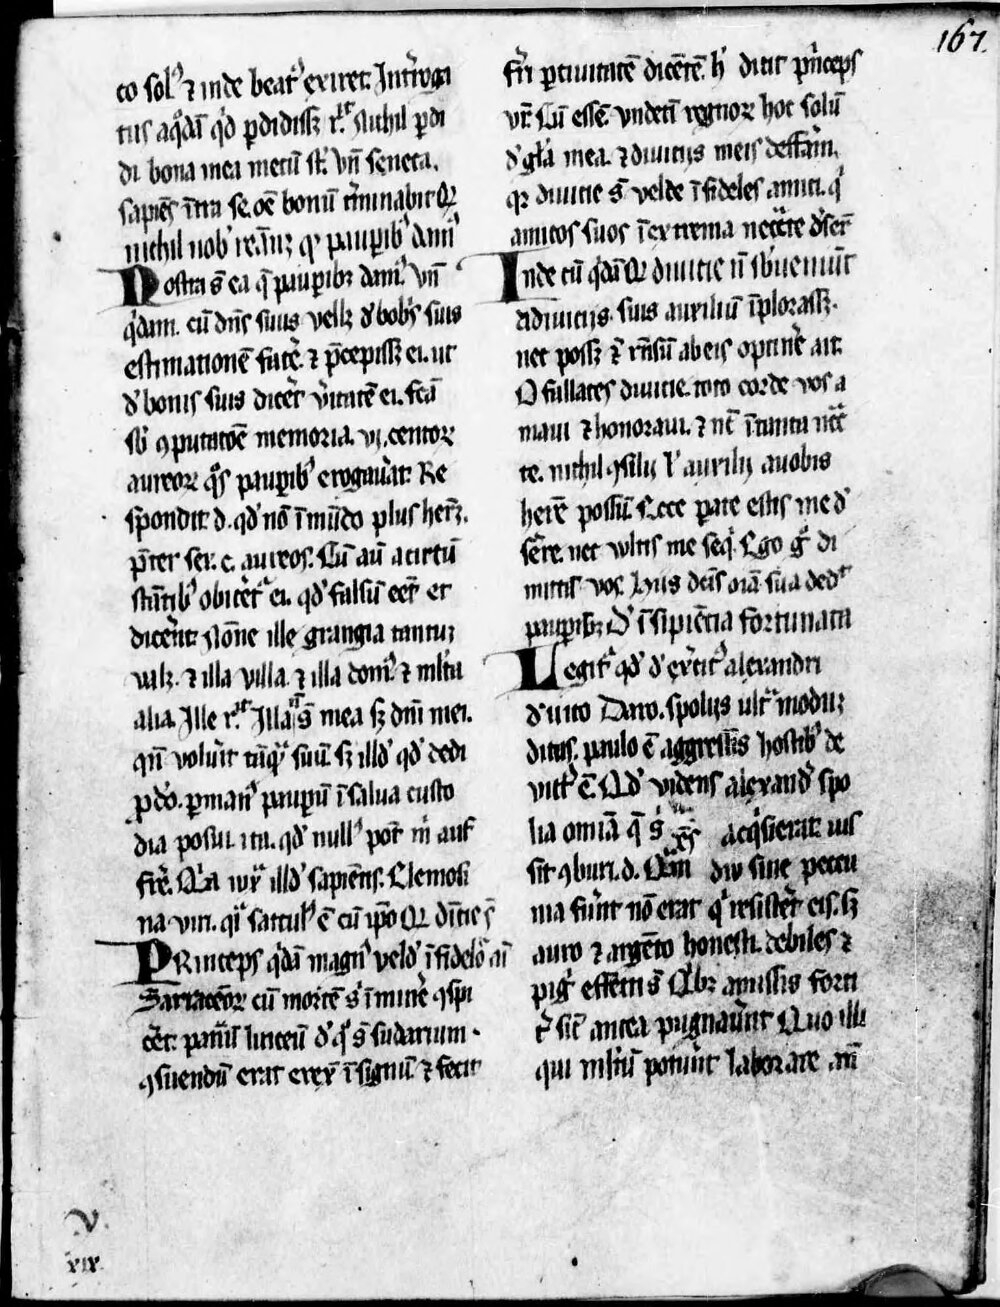 167.
to sol᷒ ⁊ inde beat᷒ exiret. Int̾roga
tus a q̊dā qͥd ꝑdidissꝫ r.ͭ Nichil ꝑdi
di bona mea mecū sꝉ. Vn̄ seneca.
sapiēs īt̾ra se. oē bonū t̾minabit Qꝛ
nichil nob᷒ reāꝫ q̾ pauꝑib᷒ dam᷒
Nostra s̄ ea q̄ pauꝑibꝫ dam᷒. Vn̄
q̊dam. cū dn̄s suus vellꝫ d̾ bobis suis
estimationē facē. ⁊ p̄cepissꝫ ei. ut
d̾ bonis suis dicēt v̾itatē ei. fcā
sb̾ ꝯputatōe memoria. vi. centoꝝ
aureoꝝ q̊s pauꝑib᷒ erogau̾at. Re
spondit. d. qd̾ nō ī mūdo plus herꝫ.
p̄ter sex. c. aureos. Cū aū a circū
stātib᷒ obicēt᷑ ei. qd̾ falsū eēt et
dicēnt. Nōne ille grangia tantuꝫ
valꝫ. ⁊ illa villa. ⁊ illa dom᷒. ⁊ ml̾ta
alia. Ille r.ͭ Illa nͦ s̄ mea sꝫ dn̄i mei.
qn̄ voluīt tāq̾ suū. sꝫ illd̾ qd̾ dedi
ꝓ dō. ꝑ man᷒ paupū ī salua custo
dia posui. ita. qd̾ null᷒ pot̾ m̄ auf
frē. Qͣꝛ iux̾ illd̾ sapiēns. Elemosi
na viri. qͣi saccul᷒ ē cū ip̄o Qꝛ dītie s̄
Princeps q̊dā magn᷒ veld̾ īfideliū aī
Sarraceōꝝ cū mortē s̾ īminē ꝯspi
cēt. pannū linceū d̾ q̊ s̄ sudarium
ꝯsuendū erat erexit ī signū ⁊ fecit
fr̄i ꝑ ciuitatē dicētē. h̾ dicit p̄nceps
vr̄. Cū essē. vndeci regnoꝝ hoc solū
d̾ gl̄a mea. ⁊ diuitijs meis defferā.
qꝛ diuitie s̄ velde īfideles amici. q̾
amicos suos ī extrema necc̄te d̾ser̄t
Inde cū q̊dā Qꝛ diuitie n̄ sb̾ueniūt
a diuitijs suis auxiliū īplorassꝫ.
nec possꝫ ⁊ rn̄sū ab eis optinē ait.
O fallaces diuitie. toto corde vos a
maui ⁊ honoraui. ⁊ nc̄ ī tanta nec̄c
te. nichil ꝯsilij l̾ auxilij a uobis
herē possū. Ecce parate estis me d̾
s̾ere. nec wltis me seq̾. Ego g̾ di
mittā vos. Hijs dcīs oīa sua ded̾
pauꝑibꝫ. D̾ īsipiētia fortunata
Legit᷑ qd̾ d̾ ex̾citu alexandri
d̾uicto Dario. spolijs ult̾ moduꝫ
ditus. paulo ē aggressis hostib᷒ de
uict᷒ ē. Qd̾ videns alexand̾ spo
lia omīa q̄ s̾ acq̾sierat. ius
sit ꝯburi. d. Qͣm diu sine pecu
nia fu̾nt nō erat q̾ resistēt eis. sꝫ
auro ⁊ argēto honesti. debiles ⁊
pig̾ effecti s̄. Qͥbꝫ amissis forti
t̾ sic̄ antea pugnau̾nt. Quo illi
qui ml̾tū potu̾nt laborare an̄
V
xix.